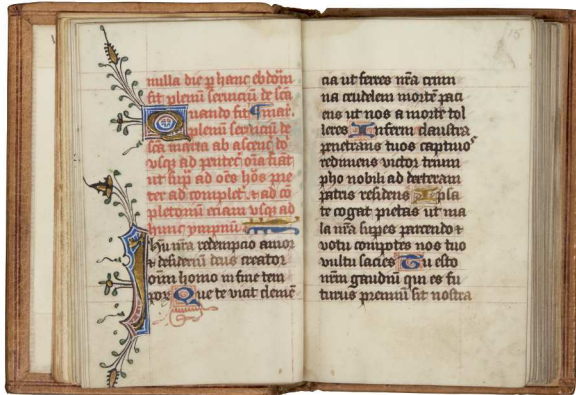 nulla die p hanc ebdom
fit plenū seruiciū de scā
Quando fit mar.
plenū seruiciū de
scā maria ab ascens do
vsqȝ ad pentec oīa fiāt
ut supͣ ad oēs hōs pre
ter ad complet. et ad cō
pletoriū eciam vsqȝ ad
hunc ympnū
Ihu nrā redempcio amor
et desideriū deus creator
oīm homo in fine tem
por Que te vicit clemē
15
cia ut ferres nrā crimi
na crudelem mortē paci
ens ut nos a morte tol
leres Inferni claustra
penetrans tuos captiuos
redimens victor trium
pho nobili ad dexteram
patris residens Ipsa
te cogat pietas ut ma
la nrā supes parcendo et
voti compotes nos tuo
vultu sacies Tu esto
nrm gaudiū qui es fu
turus premiū sit nostra